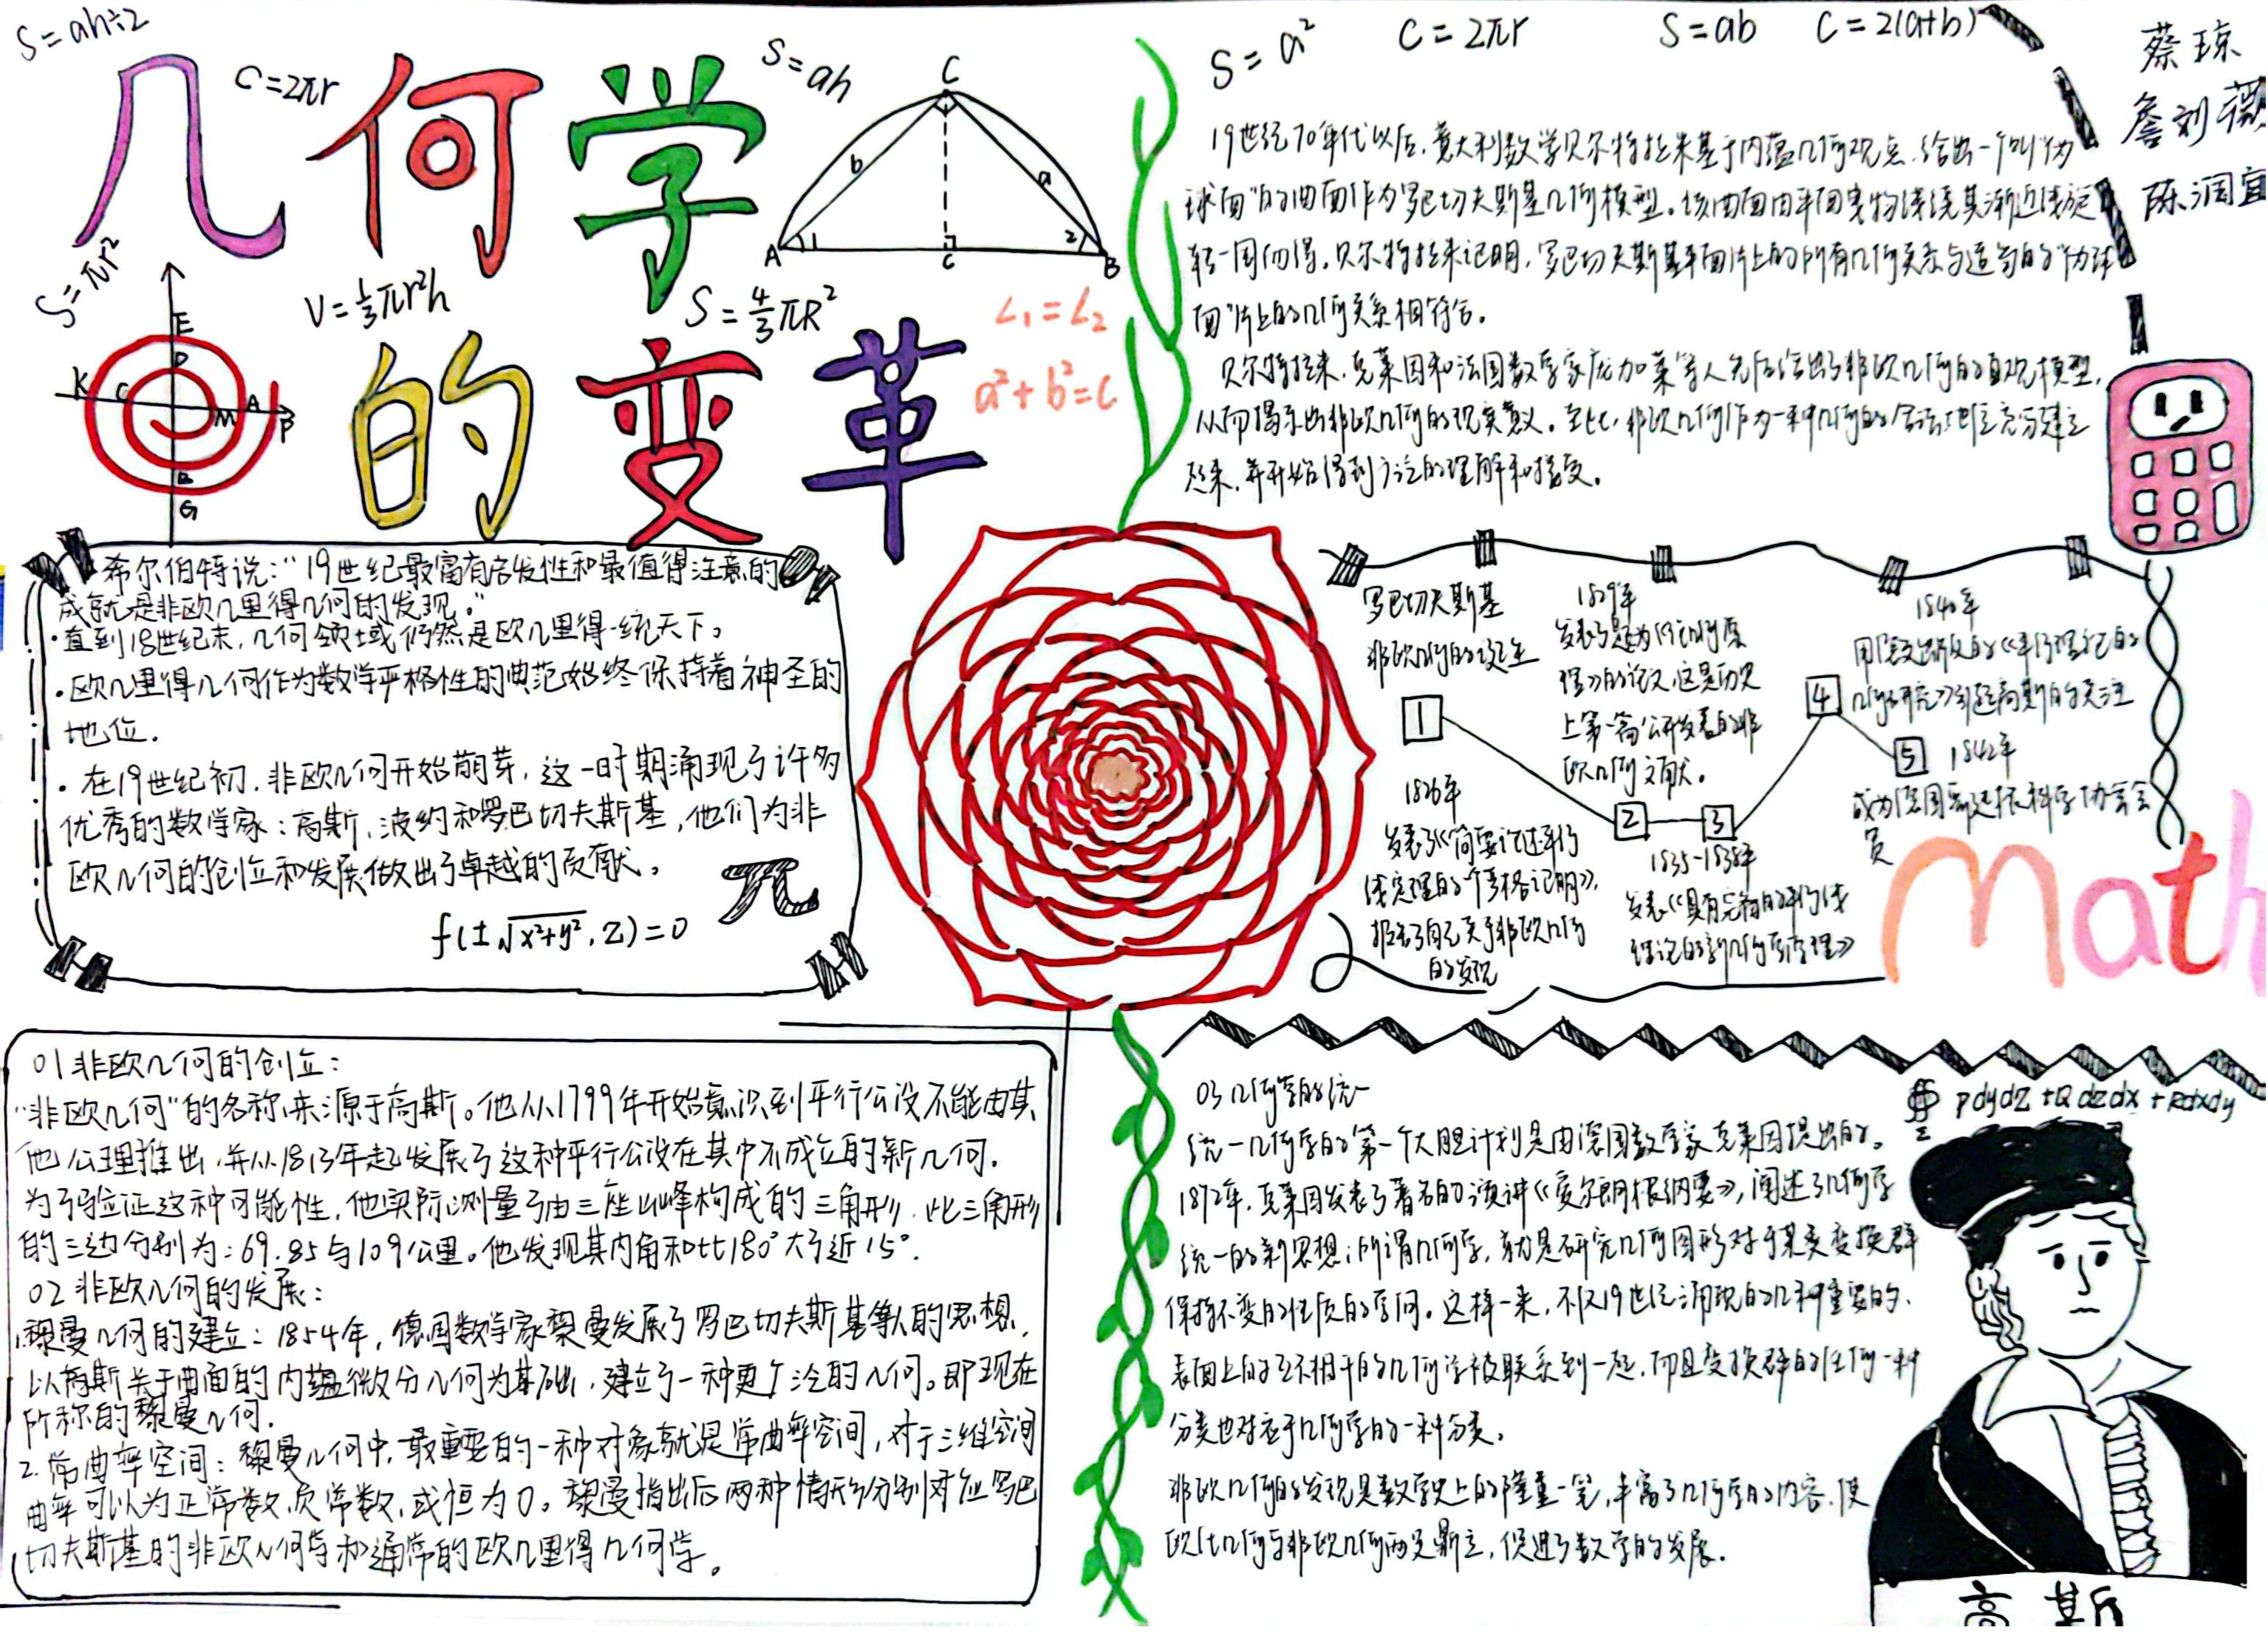 S=ah÷2
几何学
的变革
C=2πr
S=ah
S=πr²
V=⅓πr²h
S=4/3πR²
C
b
a
A
1
C
2
B
∠1=∠2
a²+b²=c
E
D
K
C
M
A
P
B
G
S=a²
C=2πr
S=ab
C=2(a+b)
蔡琼
詹刘薇
陈润宜
希尔伯特说："19世纪最富有启发性和最值得注意的
成就是非欧几里得几何的发现。"
·直到18世纪末,几何领域仍然是欧几里得一统天下。
·欧几里得几何作为数学严格性的典范始终保持着神圣的
地位.
·在19世纪初,非欧几何开始萌芽,这一时期涌现了许多
优秀的数学家:高斯,波约和罗巴切夫斯基,他们为非
欧几何的创立和发展做出了卓越的贡献。
π
f(±√x²+y²,z)=0
19世纪70年代以后,意大利数学贝尔特拉米基于内蕴几何观点,给出一个叫"伪
球面"的曲面作为罗巴切夫斯基几何模型。该曲面由平面曳物线绕其渐近线旋
转一周而得。贝尔特拉米证明,罗巴切夫斯基平面片上的所有几何关系与适当的"伪球
面"片上的几何关系相符合。
贝尔特拉米,克莱因和法国数学家庞加莱等人先后给出了非欧几何的直观模型,
从而揭示出非欧几何的现实意义。至此,非欧几何作为一种几何的合法地位充分建立
起来,并开始得到广泛的理解和接受。
罗巴切夫斯基
非欧几何的诞生
1
1826年
发表了《简要论述平行
线定理的一个严格证明》,
报告了自己关于非欧几何
的发现
1829年
发表了题为《论几何原
理》的论文,这是历史
上第一篇公开发表的非
欧几何文献。
2
3
1835-1838年
发表《具有完备的平行线
理论的新几何学原理》
1840年
用德文出版的《平行理论的
几何研究》引起高斯的关注
4
5
1842年
成为德国哥廷根科学协会会
员
Math
01非欧几何的创立:
"非欧几何"的名称来源于高斯。他从1799年开始意识到平行公设不能由其
他公理推出,并从1813年起发展了这种平行公设在其中不成立的新几何.
为了验证这种可能性,他实际测量了由三座山峰构成的三角形,此三角形
的三边分别为:69.85与109公里。他发现其内角和比180°大了近15°.
02非欧几何的发展:
1.黎曼几何的建立:1854年,德国数学家黎曼发展了罗巴切夫斯基等人的思想,
以高斯关于曲面的内蕴微分几何为基础,建立了一种更广泛的几何。即现在
所称的黎曼几何.
2.常曲率空间:黎曼几何中,最重要的一种对象就是常曲率空间,对于三维空间
曲率可以为正常数,负常数,或恒为0。黎曼指出后两种情形分别对应罗巴
切夫斯基的非欧几何学和通常的欧几里得几何学。
03几何学的统一
统一几何学的第一个大胆计划是由德国数学家克莱因提出的。
1872年,克莱因发表了著名的演讲《爱尔朗根纲要》,阐述了几何学
统一的新思想:所谓几何学,就是研究几何图形对于某类变换群
保持不变的性质的学问。这样一来,不仅19世纪涌现的几种重要的、
表面上的互不相干的几何学被联系到一起,而且变换群的任何一种
分类也对应于几何学的一种分类。
非欧几何的发现是数学史上的隆重一笔,丰富了几何学的内容,使
欧氏几何与非欧几何两足鼎立,促进了数学的发展.
∯Σ Pdydz+Qdzdx+Rdxdy
高斯